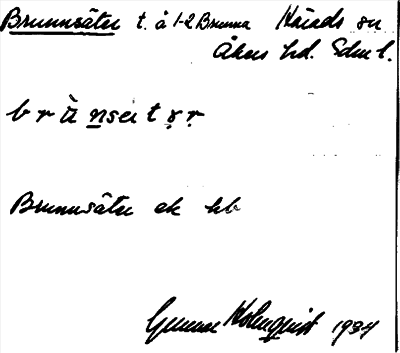 Brunnsäter t. å 1-2 Brunna Härads sn
Åkers hd. Södm l.
b r ù n sei t ər
Brunnsäter ek kb
Gunnar Holmquist 1934